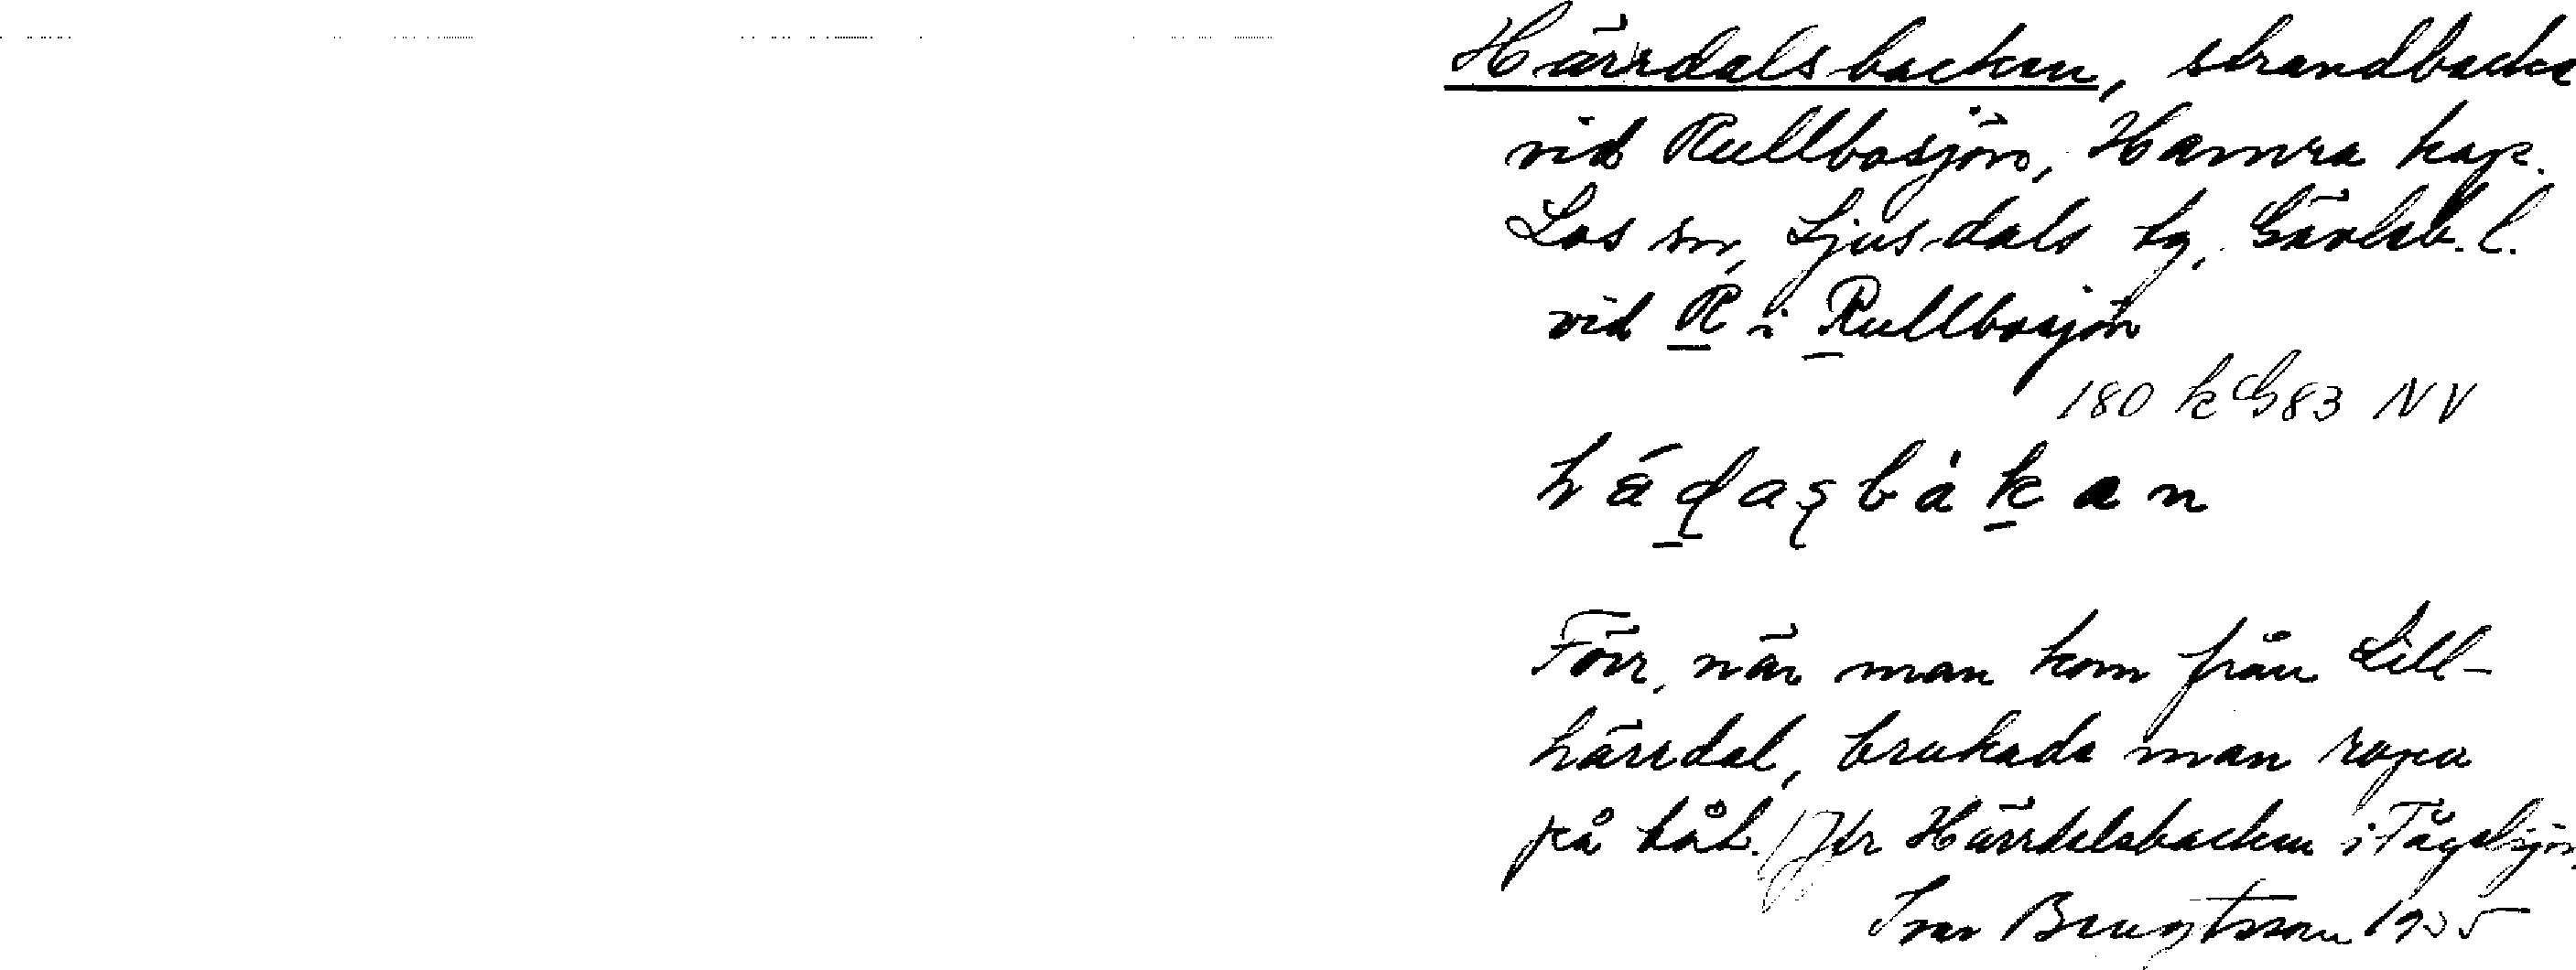 Härrdalsbacken, strandbacke
vid Rullbosjön, Hamra kap.
Los sn, Ljusdals tg, Gävleb. l.
vid R i Rullbosjön
180 k G83 NV
hádasbàkan
Förr, när man kom från Lill-
härrdal, brukade man ropa
på båt. Jfr Härrdalsbacken i Tågelsjön
Ivar Bengtsson 1935